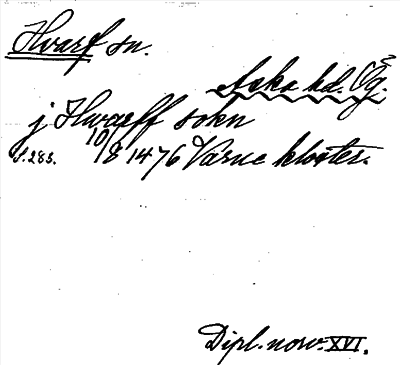 Hvarf sn.
Aska hd. Ög.
j Hwarff sokn
s. 283. 10/8 1476 Varne kloster.
Dipl. norv. XVI.